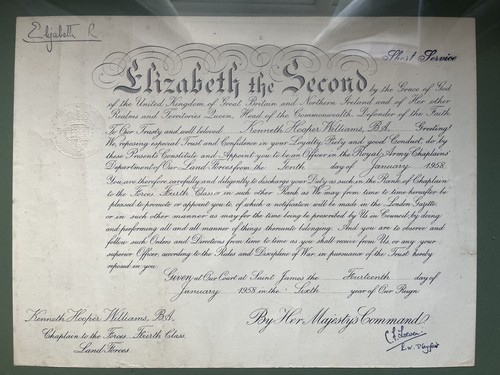 Elizabeth R
Short Service
Elizabeth the Second by the Grace of God
of the United Kingdom of Great Britain and Northern Ireland and of Her other
Realms and Territories Queen, Head of the Commonwealth, Defender of the Faith
To Our Trusty and well beloved Kenneth Hooper Williams, B.A. Greeting!
We, reposing especial Trust and Confidence in your Loyalty, Piety and good Conduct, do by
these Presents Constitute and Appoint you to be an Officer in the Royal Army Chaplains'
Department of Our Land Forces from the Tenth day of January 1958.
You are therefore carefully and diligently to discharge your Duty as such in the Rank of Chaplain
to the Forces Fourth Class or in such other Rank as We may from time to time hereafter be
pleased to promote or appoint you to, of which a notification will be made in the London Gazette
or in such other manner as may for the time being be prescribed by Us in Council, by doing
and performing all and all manner of things thereunto belonging. And you are to observe and
follow such Orders and Directions from time to time as you shall receive from Us, or any your
superior Officer, according to the Rules and Discipline of War, in pursuance of the Trust hereby
reposed in you.
Given at Our Court at Saint James the Fourteenth day of
January 1958 in the Sixth year of Our Reign
By Her Majesty's Command
Kenneth Hooper Williams, B.A.
Chaplain to the Forces Fourth Class
Land Forces
E.W. Playfair